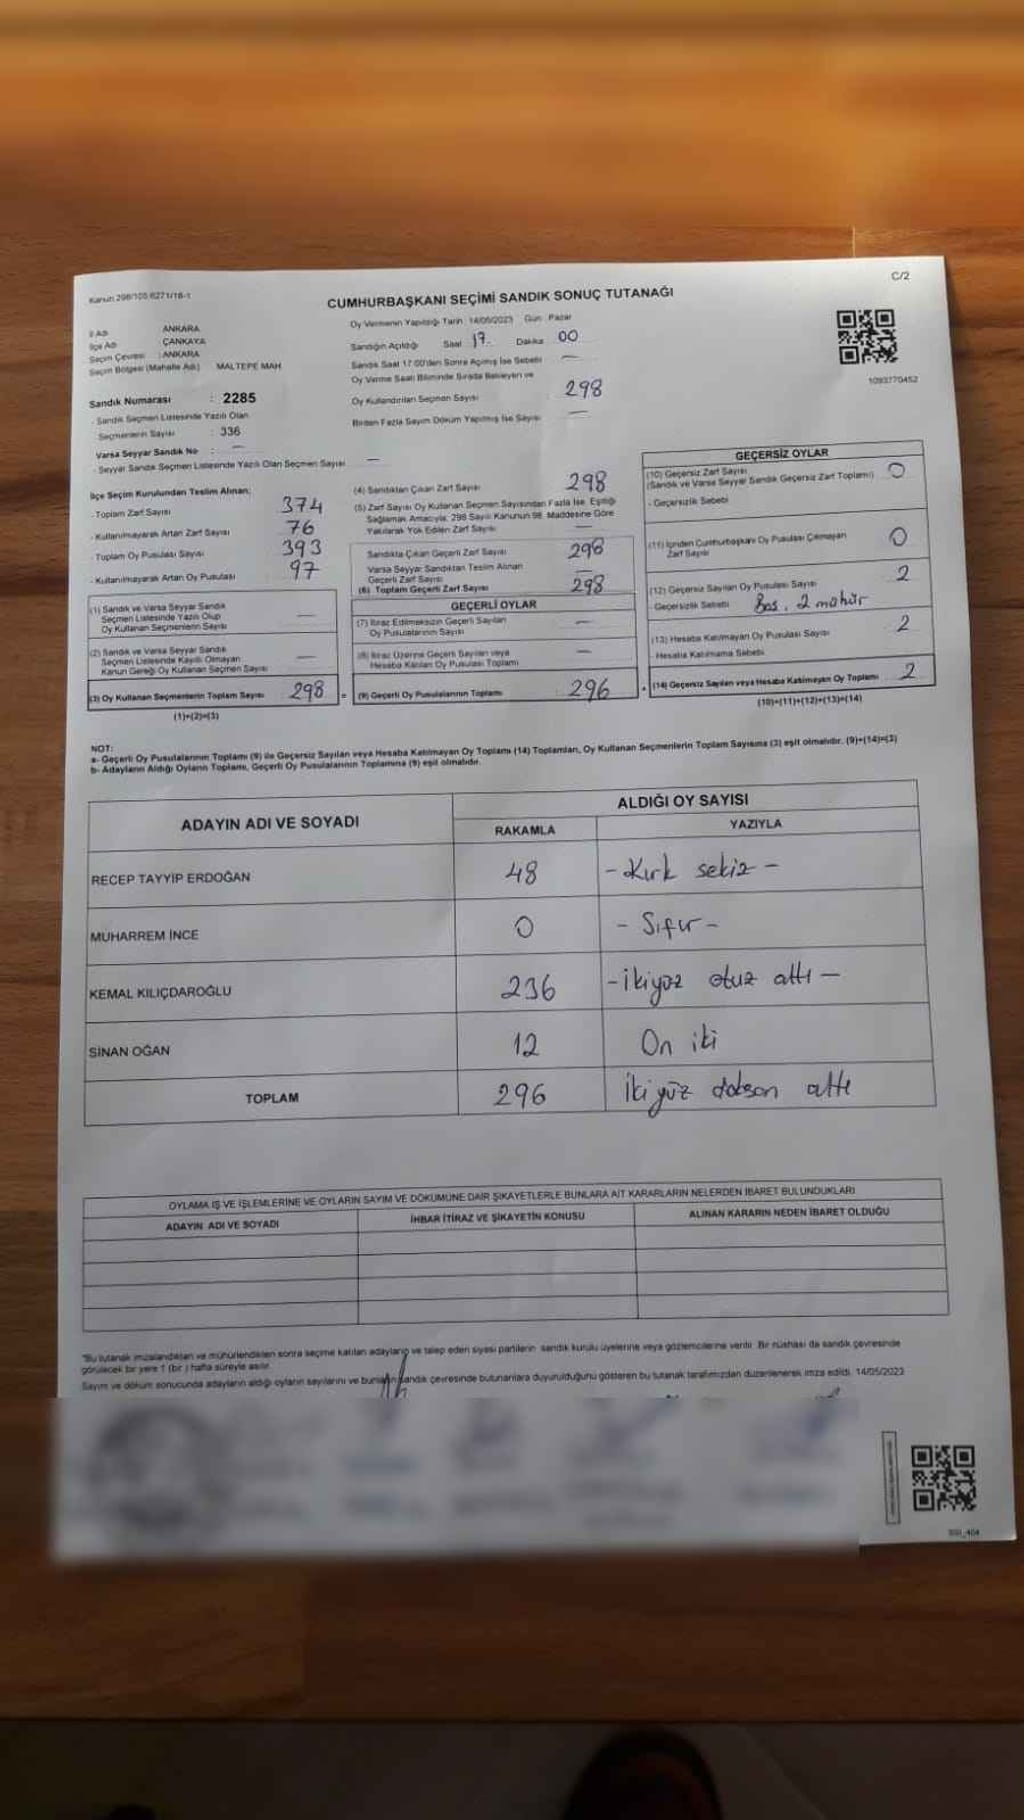 C/2
Kanun 298/105 6271/16-1
CUMHURBAŞKANI SEÇİMİ SANDIK SONUÇ TUTANAĞI
İl Adı : ANKARA
İlçe Adı : ÇANKAYA
Seçim Çevresi : ANKARA
Seçim Bölgesi (Mahalle Adı) MALTEPE MAH
Sandık Numarası : 2285
- Sandık Seçmen Listesinde Yazılı Olan
Seçmenlerin Sayısı : 336
Varsa Seyyar Sandık No : —
- Seyyar Sandık Seçmen Listesinde Yazılı Olan Seçmen Sayısı —
Oy Vermenin Yapıldığı Tarih 14/05/2023 Gün Pazar
Sandığın Açıldığı Saat 17. Dakika 00
Sandık Saat 17:00'den Sonra Açılmış İse Sebebi —
Oy Verme Saati Bitiminde Sırada Bekleyen ve
Oy Kullandırılan Seçmen Sayısı : 298
Birden Fazla Sayım Döküm Yapılmış İse Sayısı —
1093770452
İlçe Seçim Kurulundan Teslim Alınan;
- Toplam Zarf Sayısı 374
- Kullanılmayarak Artan Zarf Sayısı 76
- Toplam Oy Pusulası Sayısı 393
- Kullanılmayarak Artan Oy Pusulası 97
(1) Sandık ve Varsa Seyyar Sandık
Seçmen Listesinde Yazılı Olup
Oy Kullanan Seçmenlerin Sayısı —
(2) Sandık ve Varsa Seyyar Sandık
Seçmen Listesinde Kayıtlı Olmayan
Kanun Gereği Oy Kullanan Seçmen Sayısı —
(3) Oy Kullanan Seçmenlerin Toplam Sayısı 298 =
(1)+(2)=(3)
(4) Sandıktan Çıkan Zarf Sayısı 298
(5) Zarf Sayısı Oy Kullanan Seçmen Sayısından Fazla İse, Eşitliği
Sağlamak Amacıyla, 298 Sayılı Kanunun 98. Maddesine Göre
Yakılarak Yok Edilen Zarf Sayısı —
Sandıkta Çıkan Geçerli Zarf Sayısı 298
Varsa Seyyar Sandıktan Teslim Alınan
Geçerli Zarf Sayısı —
(6) Toplam Geçerli Zarf Sayısı 298
GEÇERLİ OYLAR
(7) İtiraz Edilmeksizin Geçerli Sayılan
Oy Pusulalarının Sayısı —
(8) İtiraz Üzerine Geçerli Sayılan veya
Hesaba Katılan Oy Pusulası Toplamı —
(9) Geçerli Oy Pusulalarının Toplamı 296 +
GEÇERSİZ OYLAR
(10) Geçersiz Zarf Sayısı 0
(Sandık ve Varsa Seyyar Sandık Geçersiz Zarf Toplamı)
- Geçersizlik Sebebi
(11) İçinden Cumhurbaşkanı Oy Pusulası Çıkmayan
Zarf Sayısı 0
(12) Geçersiz Sayılan Oy Pusulası Sayısı 2
Geçersizlik Sebebi Boş, 2 mühür
(13) Hesaba Katılmayan Oy Pusulası Sayısı 2
- Hesaba Katılmama Sebebi
(14) Geçersiz Sayılan veya Hesaba Katılmayan Oy Toplamı 2
(10)+(11)+(12)+(13)=(14)
NOT:
a- Geçerli Oy Pusulalarının Toplamı (9) ile Geçersiz Sayılan veya Hesaba Katılmayan Oy Toplamı (14) Toplamları, Oy Kullanan Seçmenlerin Toplam Sayısına (3) eşit olmalıdır. (9)+(14)=(3)
b- Adayların Aldığı Oyların Toplamı, Geçerli Oy Pusulalarının Toplamına (9) eşit olmalıdır.
ADAYIN ADI VE SOYADI ALDIĞI OY SAYISI
RAKAMLA YAZIYLA
RECEP TAYYİP ERDOĞAN 48 - Kırk sekiz -
MUHARREM İNCE 0 - Sıfır -
KEMAL KILIÇDAROĞLU 236 - ikiyüz otuz altı -
SİNAN OĞAN 12 On iki
TOPLAM 296 İkiyüz doksan altı
OYLAMA İŞ VE İŞLEMLERİNE VE OYLARIN SAYIM VE DÖKÜMÜNE DAİR ŞİKAYETLERLE BUNLARA AİT KARARLARIN NELERDEN İBARET BULUNDUKLARI
ADAYIN ADI VE SOYADI İHBAR İTİRAZ VE ŞİKAYETİN KONUSU ALINAN KARARIN NEDEN İBARET OLDUĞU
*Bu tutanak imzalandıktan ve mühürlendikten sonra seçime katılan adayların ve talep eden siyasi partilerin sandık kurulu üyelerine veya gözlemcilerine verilir. Bir nüshası da sandık çevresinde
görülecek bir yere 1 (bir ) hafta süreyle asılır.
Sayım ve döküm sonucunda adayların aldığı oyların sayılarını ve bunların sandık çevresinde bulunanlara duyurulduğunu gösteren bu tutanak tarafımızdan düzenlenerek imza edildi. 14/05/2023